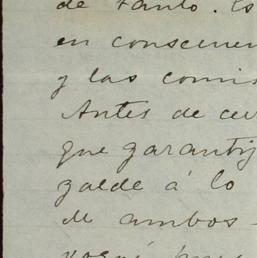 de tanto. Es
en consecuen
y las comis
Antes de cer
que garantiz
galde á lo
de ambos